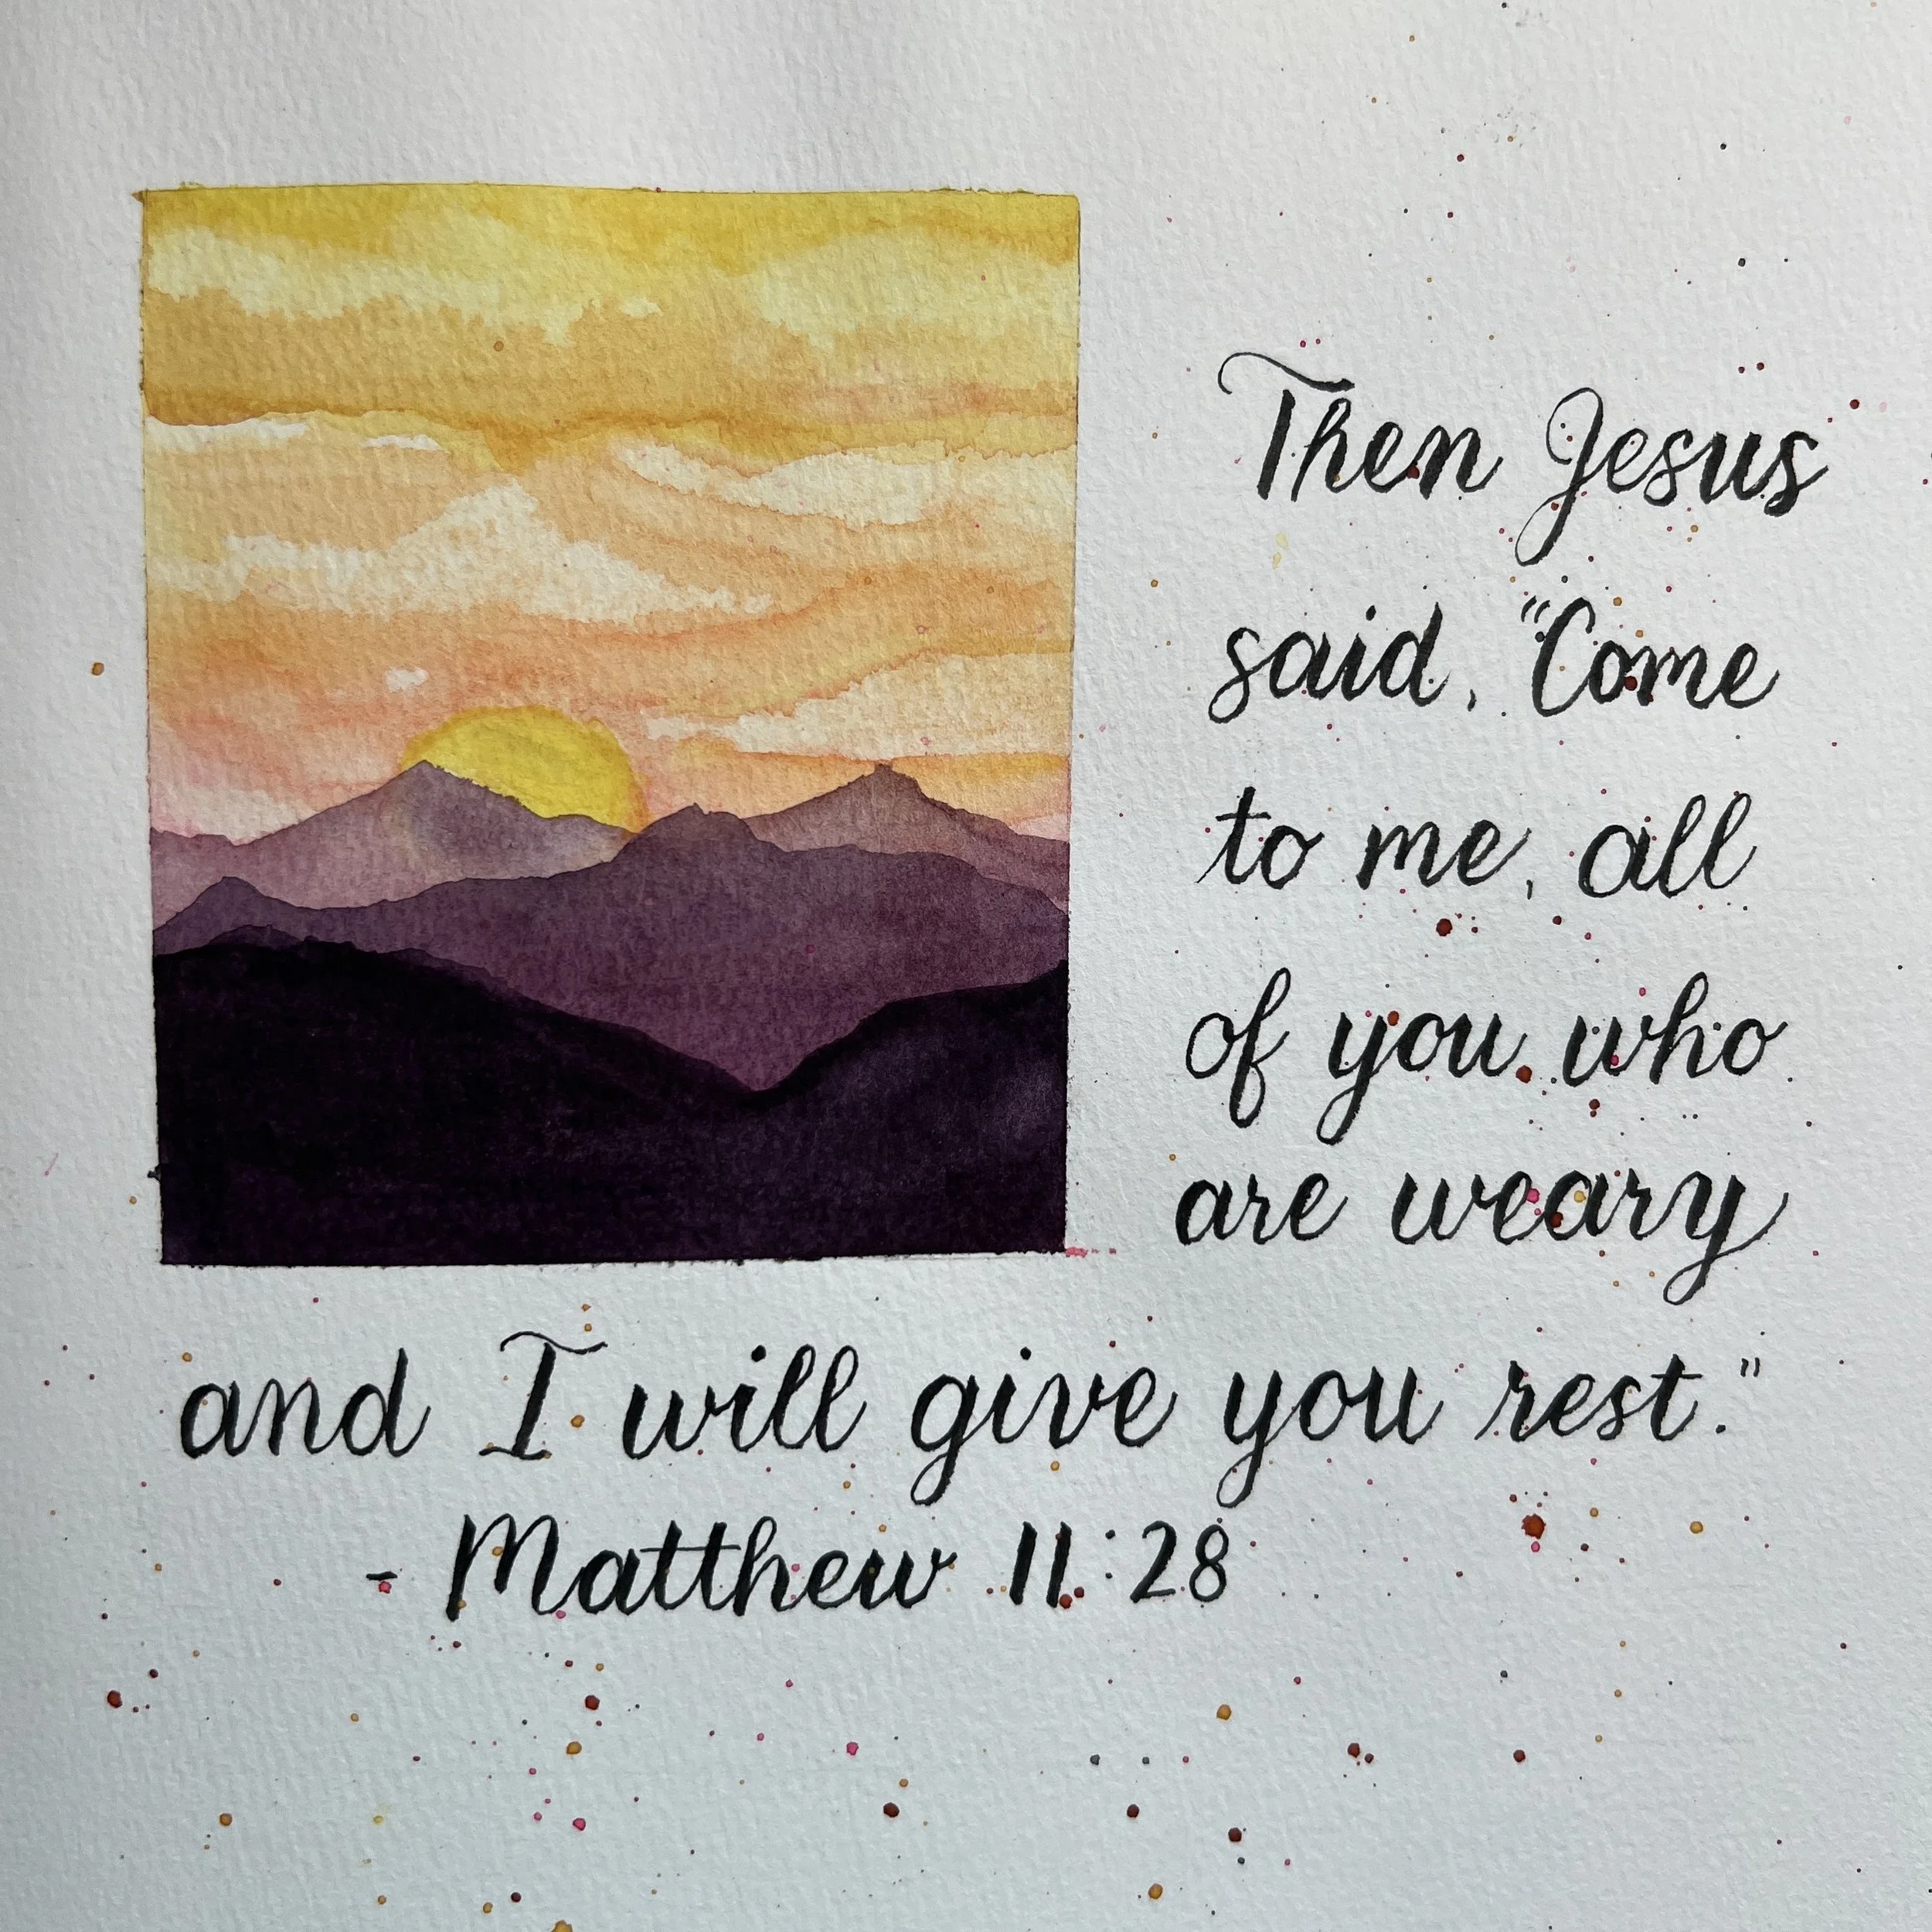 Then Jesus
said, "Come
to me, all
of you who
are weary
and I will give you rest."
- Matthew 11:28